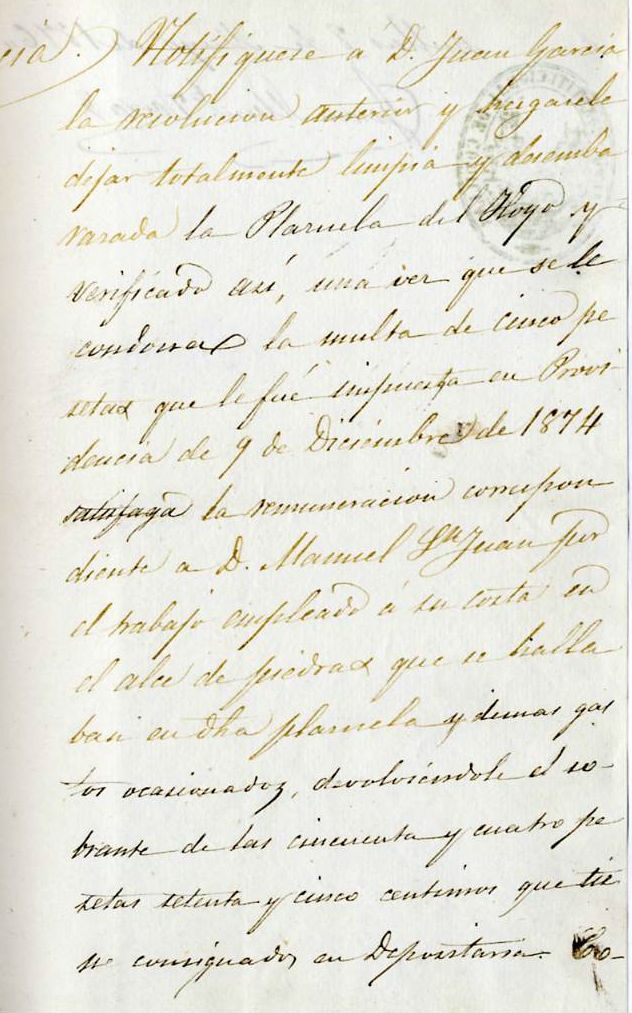 cia. Notifiquese a D. Juan Garcia
la resolucion anterior y hagasele
dejar totalmente limpia y desemba
razada la Plazuela del Hoyo y
verificado así, una vez que se le
condona la multa de cinco pe
setas que le fué impuesta en Provi-
dencia de 9 de Diciembre de 1874
satisfaga la remuneracion correspon
diente a D. Manuel Sn Juan por
el trabajo empleado á su costa en
el alce de piedras que se halla
ban en dha plazuela y demas gas
tos ocasionados, devolviéndole el so-
brante de las cincuenta y cuatro pe
setas setenta y cinco centimos que tie
ne consignados en Depositaria. Lo-